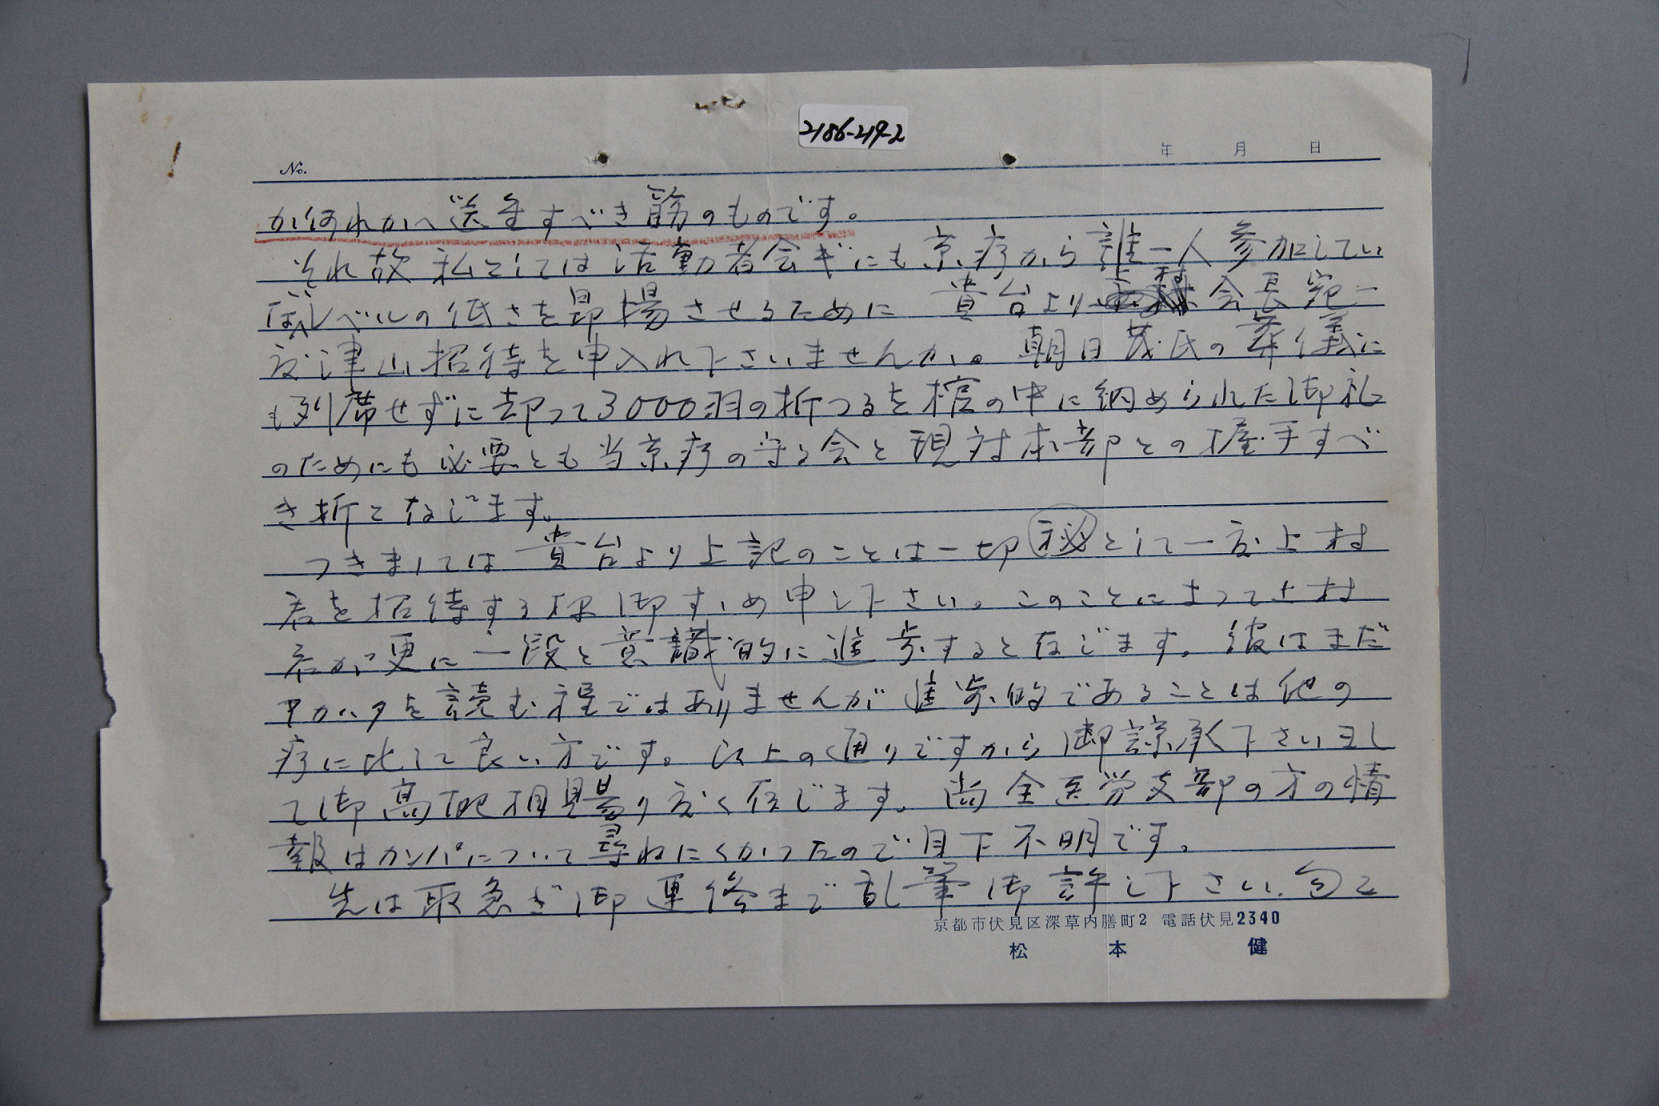 2186-219-2
No.
年 月 日
か何れかへ送金すべき筋のものです。
それ故私としては活動者会ギにも京療から誰一人参加してい
ないレベルの低さを昂揚させるために 貴台より 会長宛一
度津山招待を申入れ下さいませんか。朝日茂氏の葬儀に
も列席せずに却って3000羽の折つるを棺の中に納められた御礼
のためにも必要とも当京療の守る会と現対本部との握手すべ
き折と存じます。
つきましては貴台より上記のことは一切秘として一度上村
君を招待する様御すゝめ申し下さい。このことによって上村
君が更に一段と意識的に進歩すると存じます。彼はまだ
アカハタを読む程ではありませんが進歩的であることは他の
療に比して良い方です。以上の通りですから御諒承下さいまし
て御高配相見賜り度く存じます。尚全医労支部の方の情
報はカンパについて尋ねにくかったので目下不明です。
先は取急ぎ御連絡まで乱筆御許し下さい。匆々
京都市伏見区深草内膳町2 電話伏見2340
松本 健